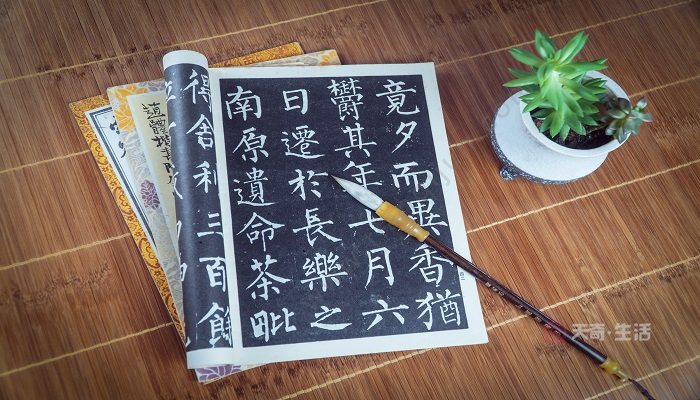 竟夕而異香猶
鬱其年七月六
日遷於長樂之
南原遺命荼毗
得舍利三百餘
天奇·生活